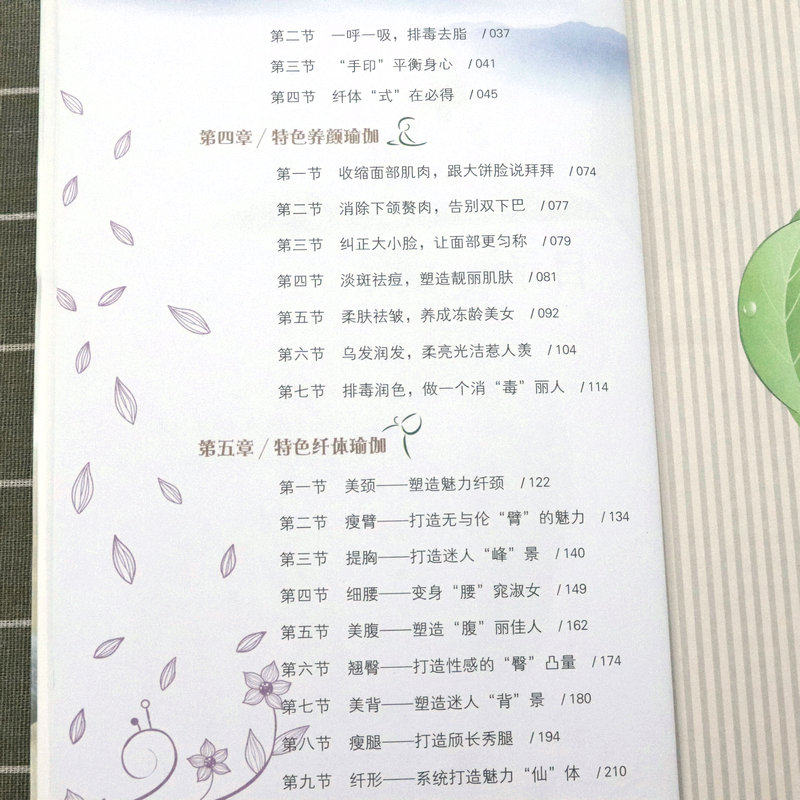 第二节 一呼一吸，排毒去脂 /037
第三节 “手印”平衡身心 /041
第四节 纤体“式”在必得 /045
第四章/特色养颜瑜伽
第一节 收缩面部肌肉，跟大饼脸说拜拜 /074
第二节 消除下颌赘肉，告别双下巴 /077
第三节 纠正大小脸，让面部更匀称 /079
第四节 淡斑祛痘，塑造靓丽肌肤 /081
第五节 柔肤祛皱，养成冻龄美女 /092
第六节 乌发润发，柔亮光洁惹人羡 /104
第七节 排毒润色，做一个消“毒”丽人 /114
第五章/特色纤体瑜伽
第一节 美颈——塑造魅力纤颈 /122
第二节 瘦臂——打造无与伦“臂”的魅力 /134
第三节 提胸——打造迷人“峰”景 /140
第四节 细腰——变身“腰”窕淑女 /149
第五节 美腹——塑造“腹”丽佳人 /162
第六节 翘臀——打造性感的“臀”凸量 /174
第七节 美背——塑造迷人“背”景 /180
第八节 瘦腿——打造颀长秀腿 /194
第九节 纤形——系统打造魅力“仙”体 /210